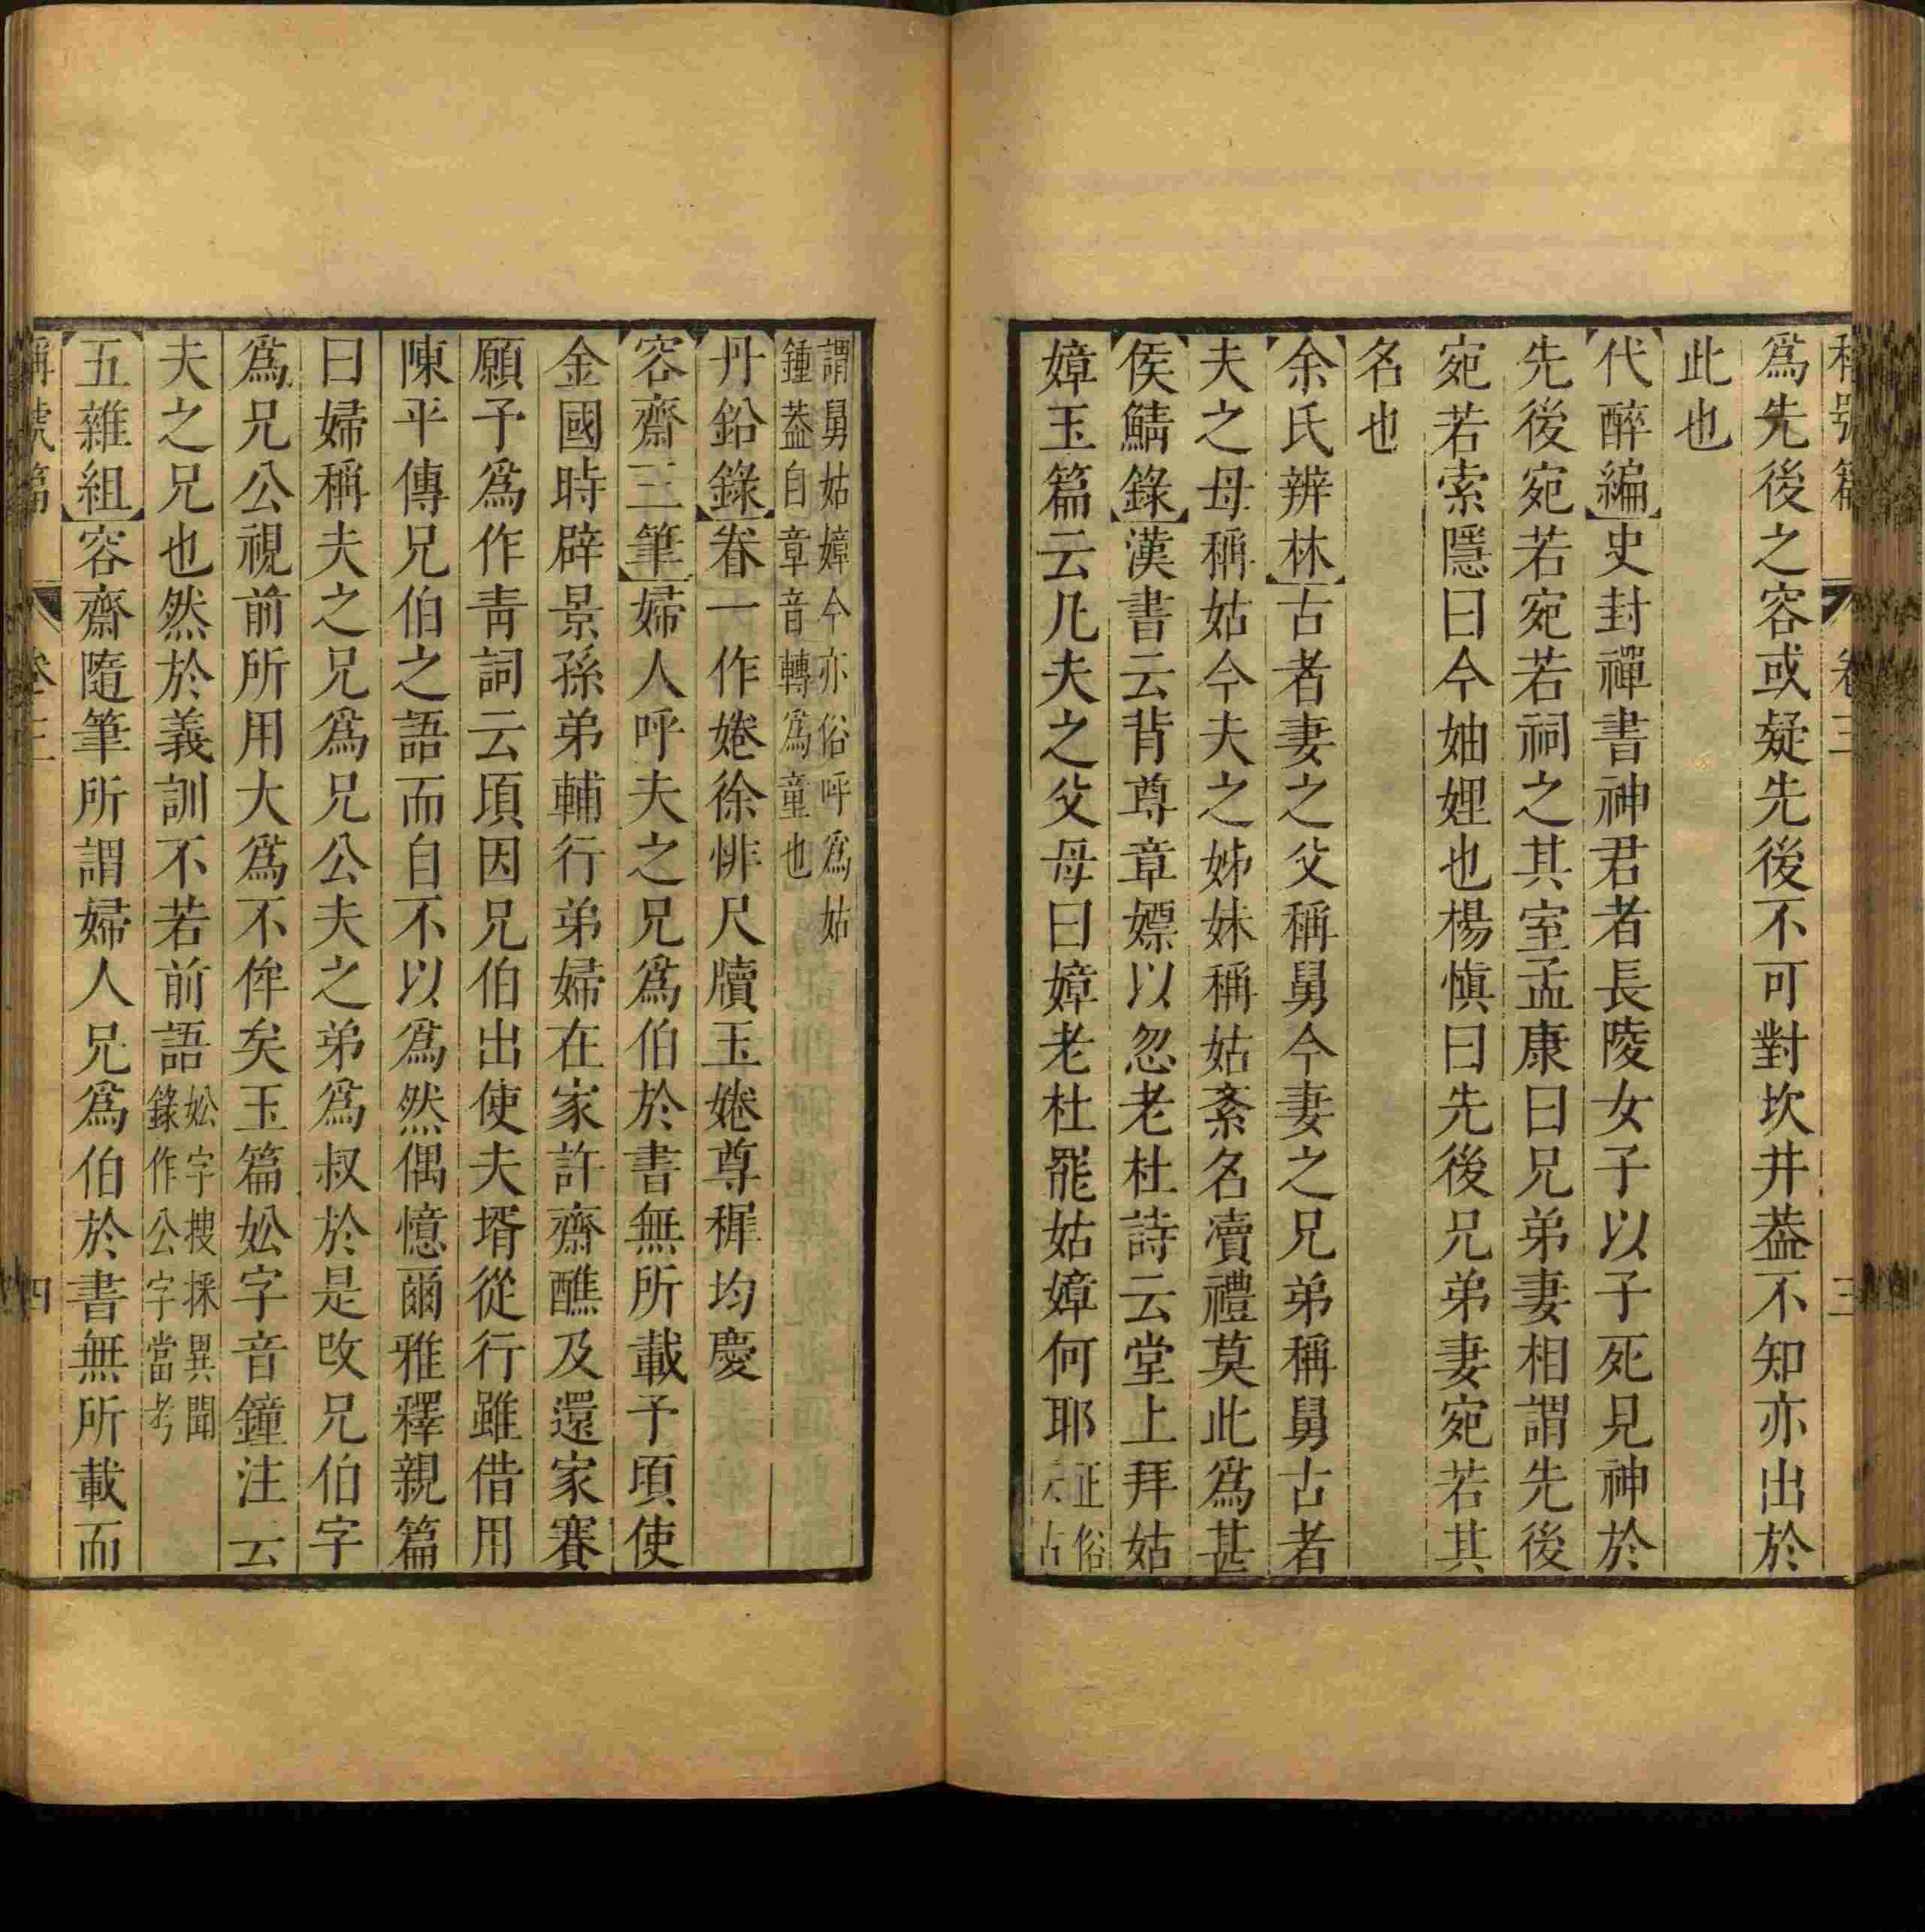 稱號篇 卷三 三
爲先後之容或疑先後不可對坎井葢不知亦出於
此也
【代醉編】史封禪書神君者長陵女子以子死見神於
先後宛若宛若祠之其室孟康曰兄弟妻相謂先後
宛若索隱曰今妯娌也楊愼曰先後兄弟妻宛若其
名也
【余氏辨林】古者妻之父稱舅今妻之兄弟稱舅古者
夫之母稱姑今夫之姊妹稱姑紊名瀆禮莫此爲甚
【侯鯖錄】漢書云背尊章嫖以忽老杜詩云堂上拜姑
嫜玉篇云凡夫之父母曰嫜老杜罷姑嫜何耶 正俗
云古
謂舅姑嫜今亦俗呼爲姑
鍾葢自章音轉爲童也
【丹鉛錄】嫜一作婘徐悱尺牘玉婘尊穉均慶
【容齋三筆】婦人呼夫之兄爲伯於書無所載予頃使
金國時辟景孫弟輔行弟婦在家許齋醮及還家賽
願予爲作靑詞云頃因兄伯出使夫壻從行雖借用
陳平傳兄伯之語而自不以爲然偶憶爾雅釋親篇
曰婦稱夫之兄爲兄公夫之弟爲叔於是改兄伯字
爲兄公視前所用大爲不侔矣玉篇妐字音鐘注云
夫之兄也然於義訓不若前語 妐字搜採異聞
錄作公字當考
【五雜組】容齋隨筆所謂婦人兄爲伯於書無所載而
稱號篇 卷三 四